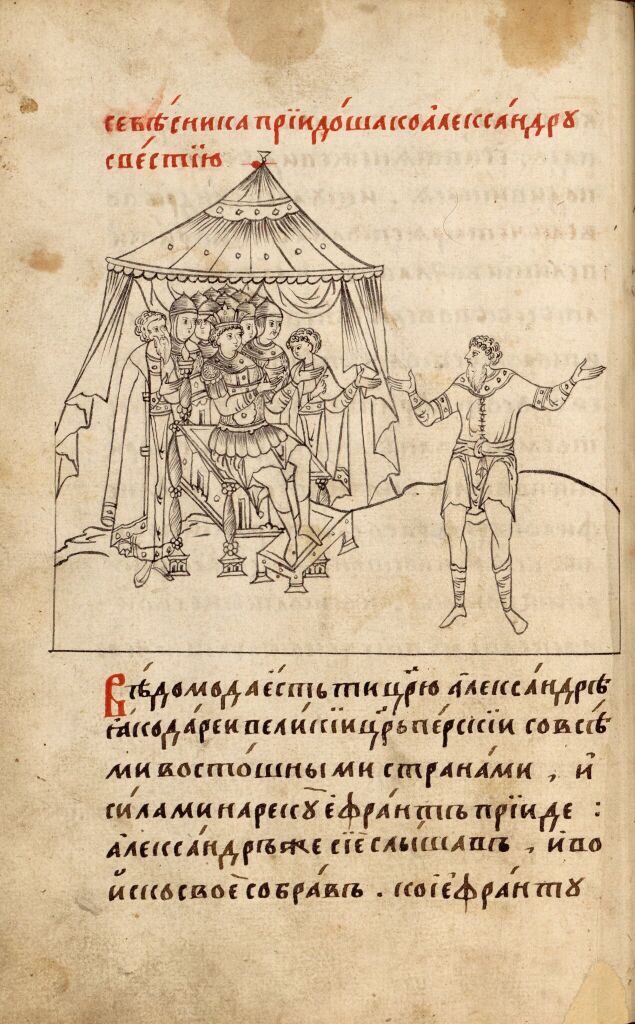 се вѣ́сника прїидо́ша ко а҆леѯа́ндру
с ве́стїю
Вѣ́домо да е҆сть ти цр҃ю а҆леѯа́ндрѣ
ꙗ҆ко да́реи вели́кїи цр҃ь пе́рсїи со всѣ́
ми восто́шными страна́ми , и҆
си́лами на реку̀ е҆фра́нтъ прїиде :
а҆леѯа́ндръ же сїе слы́шавъ , и҆ во
йско свое҆ собра́въ . ко е҆фра́нту